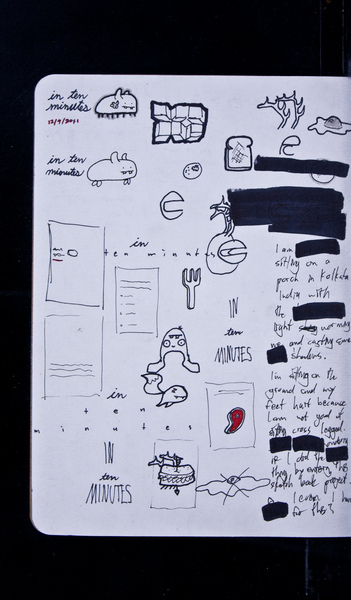 in ten
minutes
12/9/2011
in ten
minutes
in
ten minutes
IN
ten
MINUTES
in
ten
minutes
IN
ten
MINUTES
I am
sitting on a
porch in Kolkata
India with
the
light
and casting some
shadows.
I'm sitting on the
ground and my
feet hurt because
I am not good at
sitting cross legged.
if I did the
thing by entering this
sketch book project.
for this?